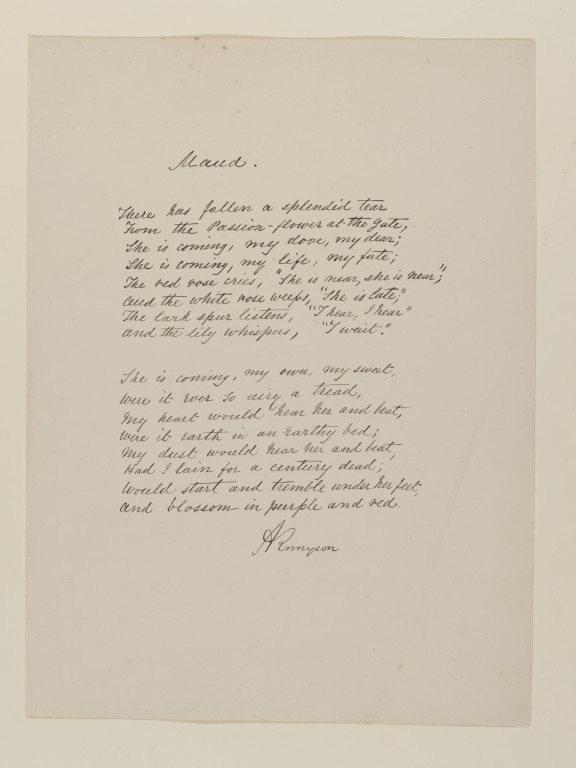 Maud.
There has fallen a splendid tear
From the Passion-flower at the Gate,
She is coming, my dove, my dear;
She is coming, my life, my fate;
The red rose cries, "She is near, she is near";
And the white rose weeps, "She is late;"
The lark spur listens, "I hear, I hear"
And the lily whispers, "I wait."
She is coming, my own, my sweet,
Were it Ever so airy a tread,
My heart would hear her and beat,
Were it earth in an Earthy bed;
My dust would hear her and beat,
Had I lain for a century dead;
Would start and tremble under her feet,
And blossom in purple and red.
ATennyson